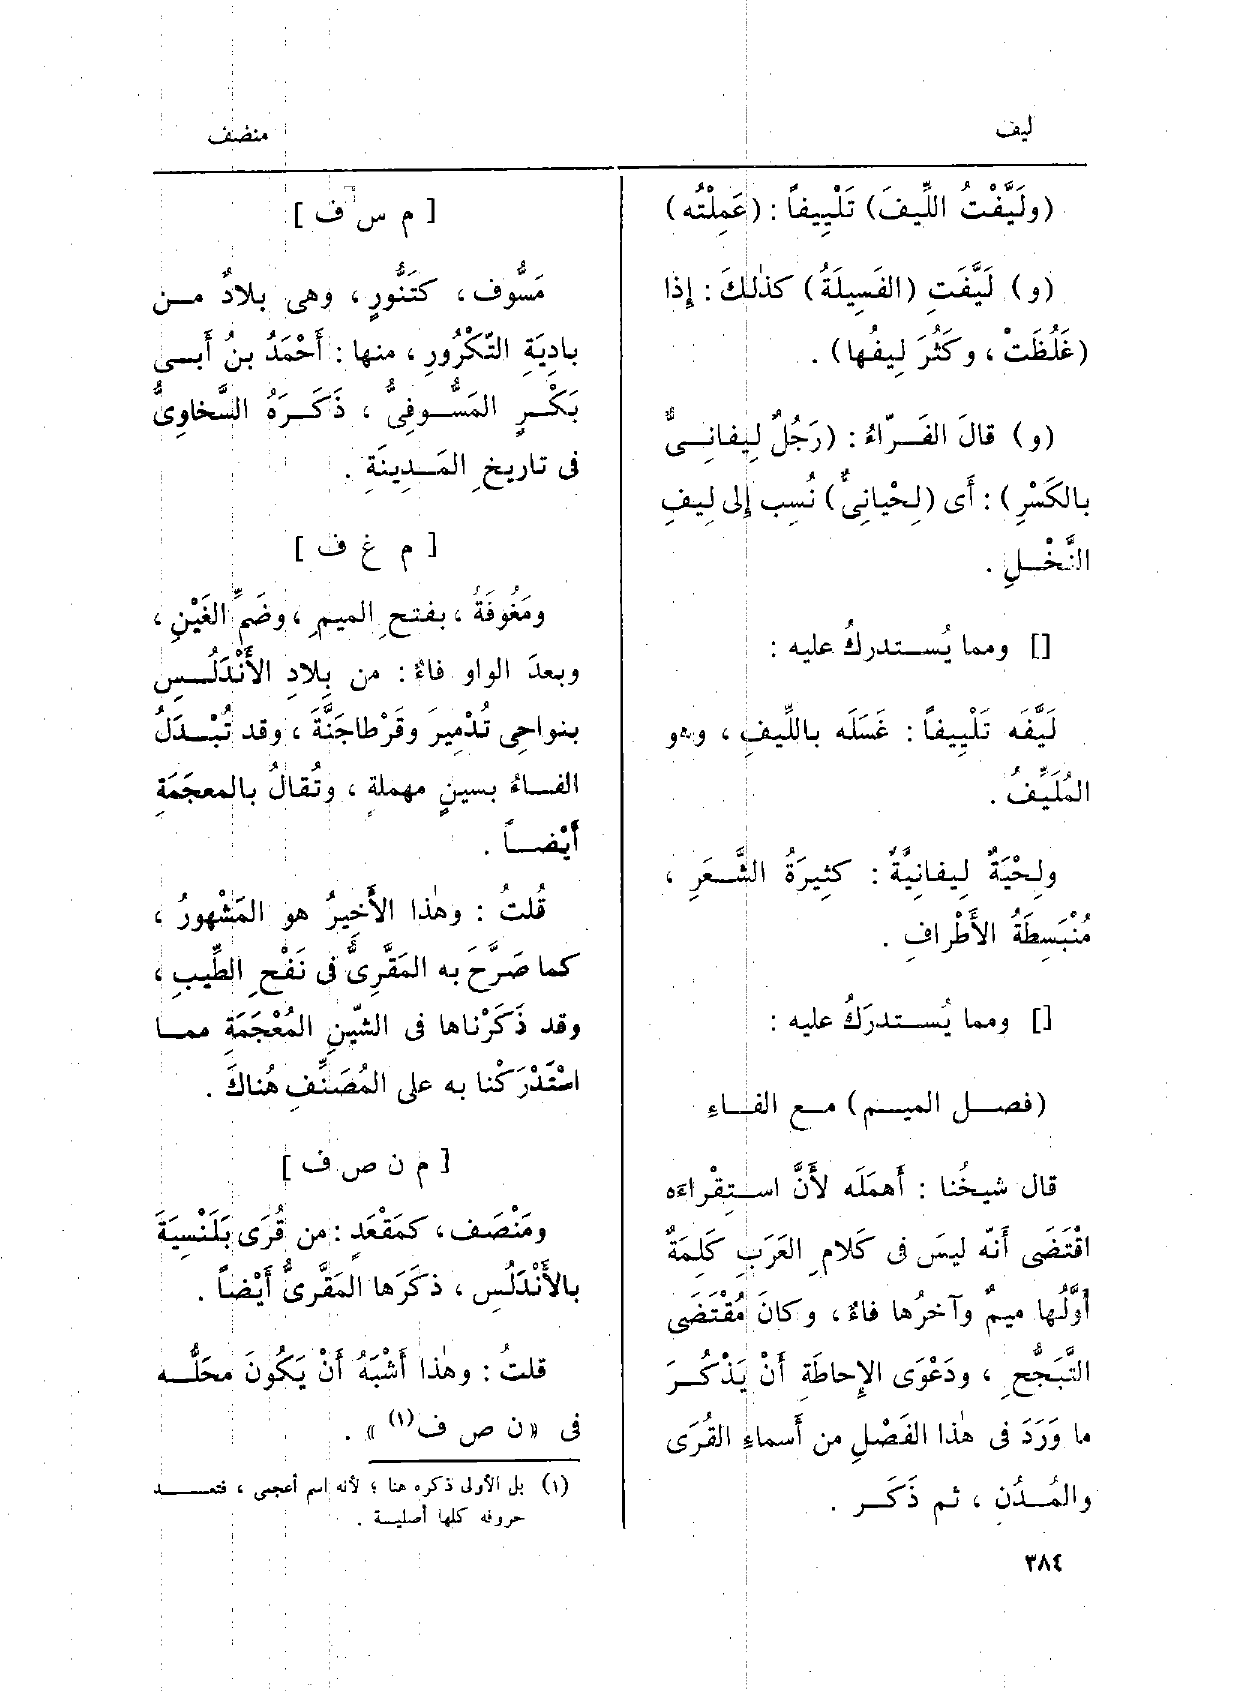 ليف
منضف
(ولَيَّفْتُ اللِّيفَ) تَلْيِيفاً : (عَمِلْتُه)
(و) لَيَّفَتِ (الفَسِيلَةُ) كذٰلكَ : إِذا
(غَلُظَتْ ، وكَثُرَ لِيفُها) .
(و) قالَ الفَـرّاءُ : (رَجُلٌ لِيفانِـىٌّ
بالكَسْرِ) : أَى (لِحْيانِىٌّ) نُسِب إِلى لِيفِ
النَّخْـلِ .
[] ومما يُسـتدركُ عليه :
لَيَّفَه تَلْيِيفاً : غَسَلَه باللِّيفِ ، وهو
المُلَيِّفُ .
ولِحْيَةٌ لِيفانِيَّةٌ : كثِيرَةُ الشَّـعَرِ ،
مُنْبَسِطَةُ الأَطْرافِ .
[] ومما يُسـتدرَكُ عليه :
(فصـل الميـم) مـع الفـاءِ
قال شيخُنا : أَهمَلَه لأَنَّ اسـتِقْراءَه
اقْتَضَى أَنّه ليسَ فى كَلامِ العَرَبِ كَلِمَةٌ
أَوَّلُها ميمٌ وآخرُها فاءٌ ، وكانَ مُقْتَضَى
التَّبَجُّحِ ، ودَعْوَى الإِحاطَةِ أَنْ يَذْكُـرَ
ما وَرَدَ فى هٰذا الفَصْلِ من أَسماءِ القُرَى
والمُـدُن ، ثم ذَكَـر .
[ م س ف ]
مَسُّوف ، كتَنُّورٍ ، وهى بلادٌ مـن
بادِيَةِ التَّكْرُورِ ، منها : أَحْمَدُ بنُ أَبـى
بَكْـرٍ المَسُّـوفِىُّ ، ذَكَـرَهُ السَّخاوِىُّ
فى تاريخِ المَـدِينَةِ .
[ م غ ف ]
ومَغُوفَةُ ، بفتحِ الميمِ ، وضَمِّ الغَيْنِ ،
وبعدَ الواو فاءٌ : من بِلادِ الأَنْدَلُـسِ
بنواحِى تُدْمِيرَ وقَرْطاجَنَّةَ ، وقد تُبْـدَلُ
الفـاءُ بسينٍ مهملةٍ ، وتُقالُ بالمعجَمَةِ
أَيْضـاً .
قُلتُ : وهٰذا الأَخِيرُ هو المَشْهورُ ،
كما صَرَّحَ به المَقَّرِىُّ فى نَفْحِ الطِّيبِ ،
وقد ذَكَرْناها فى الشّينِ المُعْجَمَةِ ممـا
اسْتَدْرَكْنا به على المُصَنِّفِ هُناكَ .
[ م ن ص ف ]
ومَنْصَف ، كمَقْعَدٍ : من قُرَى بَلَنْسِيَةَ
بالأَنْدَلُسِ ، ذكَرَها المَقَّرِىُّ أَيْضاً .
قلتُ : وهٰذا أَشْبَهُ أَنْ يَكُونَ محَلُّـه
فى «ن ص ف(١)» .
(١) بل الأولى ذكره هنا ؛ لأنه اسم أعجمى ، فتعـد
حروفه كلها أصليـة .
٣٨٤